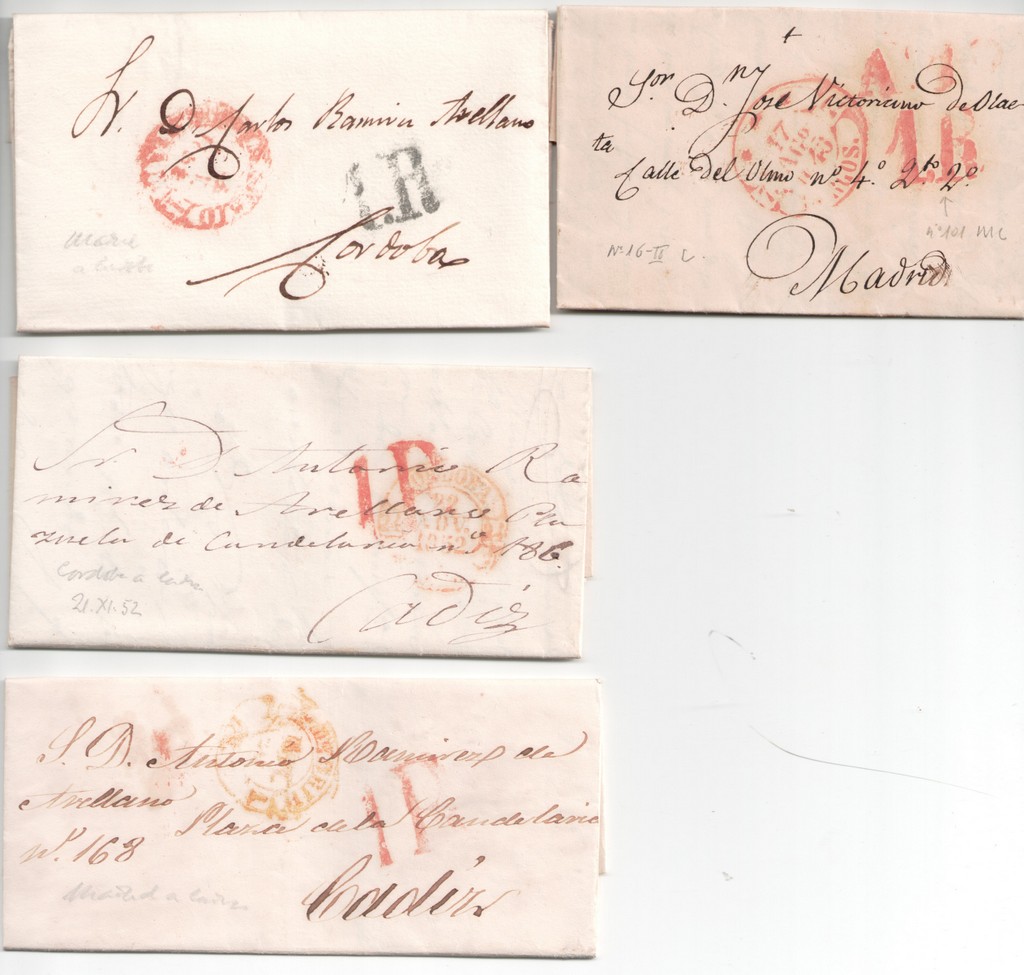 Sr. D. Carlos Ramirez Arellano
1R
Cordoba
Madrid
a Cordoba
Sor. Dn. Jose Victoriano de Olae-
ta
Calle del Olmo nº 4º 2to 2º
17 AGO
1R
nº 101 MC
Nº 16-II C.
Madrid
Sr. D. Antonio Ra
mirez de Arellano Pla
zuela de Candelaria nº 186.
1R
22
NOV.
1852
Cordoba a Cadiz
21-XI-52
Cadiz
S. D. Antonio Ramirez de
Arellano
Plaza de la Candelaria
Nº. 168
1R
MADRID
Madrid a Cadiz
Cadiz